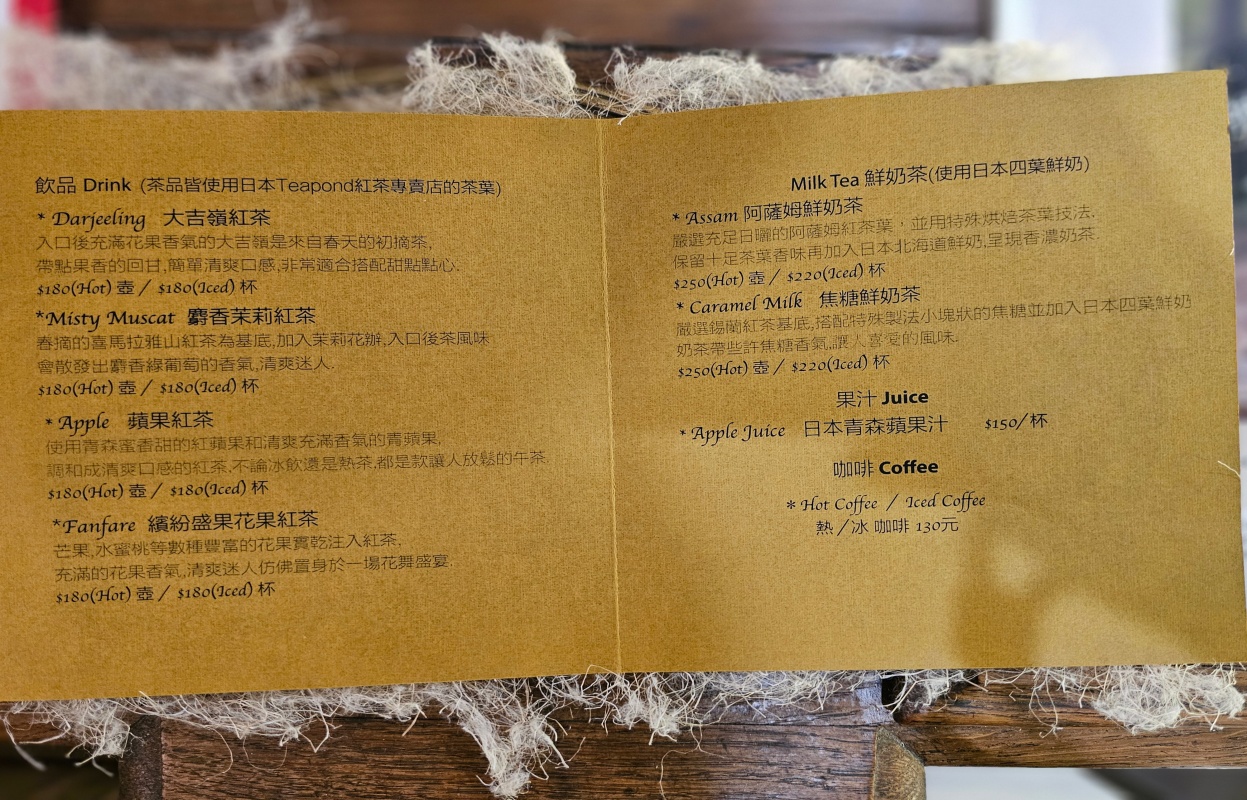 飲品 Drink (茶品皆使用日本Teapond紅茶專賣店的茶葉)
* Darjeeling 大吉嶺紅茶
入口後充滿花果香氣的大吉嶺是來自春天的初摘茶,
帶點果香的回甘,簡單清爽口感,非常適合搭配甜點點心.
$180(Hot) 壺 / $180(Iced) 杯
*Misty Muscat 麝香茉莉紅茶
春摘的喜馬拉雅山紅茶為基底,加入茉莉花辦,入口後茶風味
會散發出麝香綠葡萄的香氣,清爽迷人.
$180(Hot) 壺 / $180(Iced) 杯
* Apple 蘋果紅茶
使用青森蜜香甜的紅蘋果和清爽充滿香氣的青蘋果,
調和成清爽口感的紅茶,不論冰飲還是熱茶,都是款讓人放鬆的午茶.
$180(Hot) 壺 / $180(Iced) 杯
*Fanfare 繽紛盛果花果紅茶
芒果,水蜜桃等數種豐富的花果實乾注入紅茶,
充滿的花果香氣,清爽迷人仿佛置身於一場花舞盛宴.
$180(Hot) 壺 / $180(Iced) 杯
Milk Tea 鮮奶茶(使用日本四葉鮮奶)
* Assam 阿薩姆鮮奶茶
嚴選充足日曬的阿薩姆紅茶葉，並用特殊烘焙茶葉技法,
保留十足茶葉香味再加入日本北海道鮮奶,呈現香濃奶茶.
$250(Hot) 壺 / $220(Iced) 杯
* Caramel Milk 焦糖鮮奶茶
嚴選錫蘭紅茶基底,搭配特殊製法小塊狀的焦糖並加入日本四葉鮮奶
奶茶帶些許焦糖香氣,讓人喜愛的風味.
$250(Hot) 壺 / $220(Iced) 杯
果汁 Juice
* Apple Juice 日本青森蘋果汁 $150/杯
咖啡 Coffee
* Hot Coffee / Iced Coffee
熱/冰 咖啡 130元